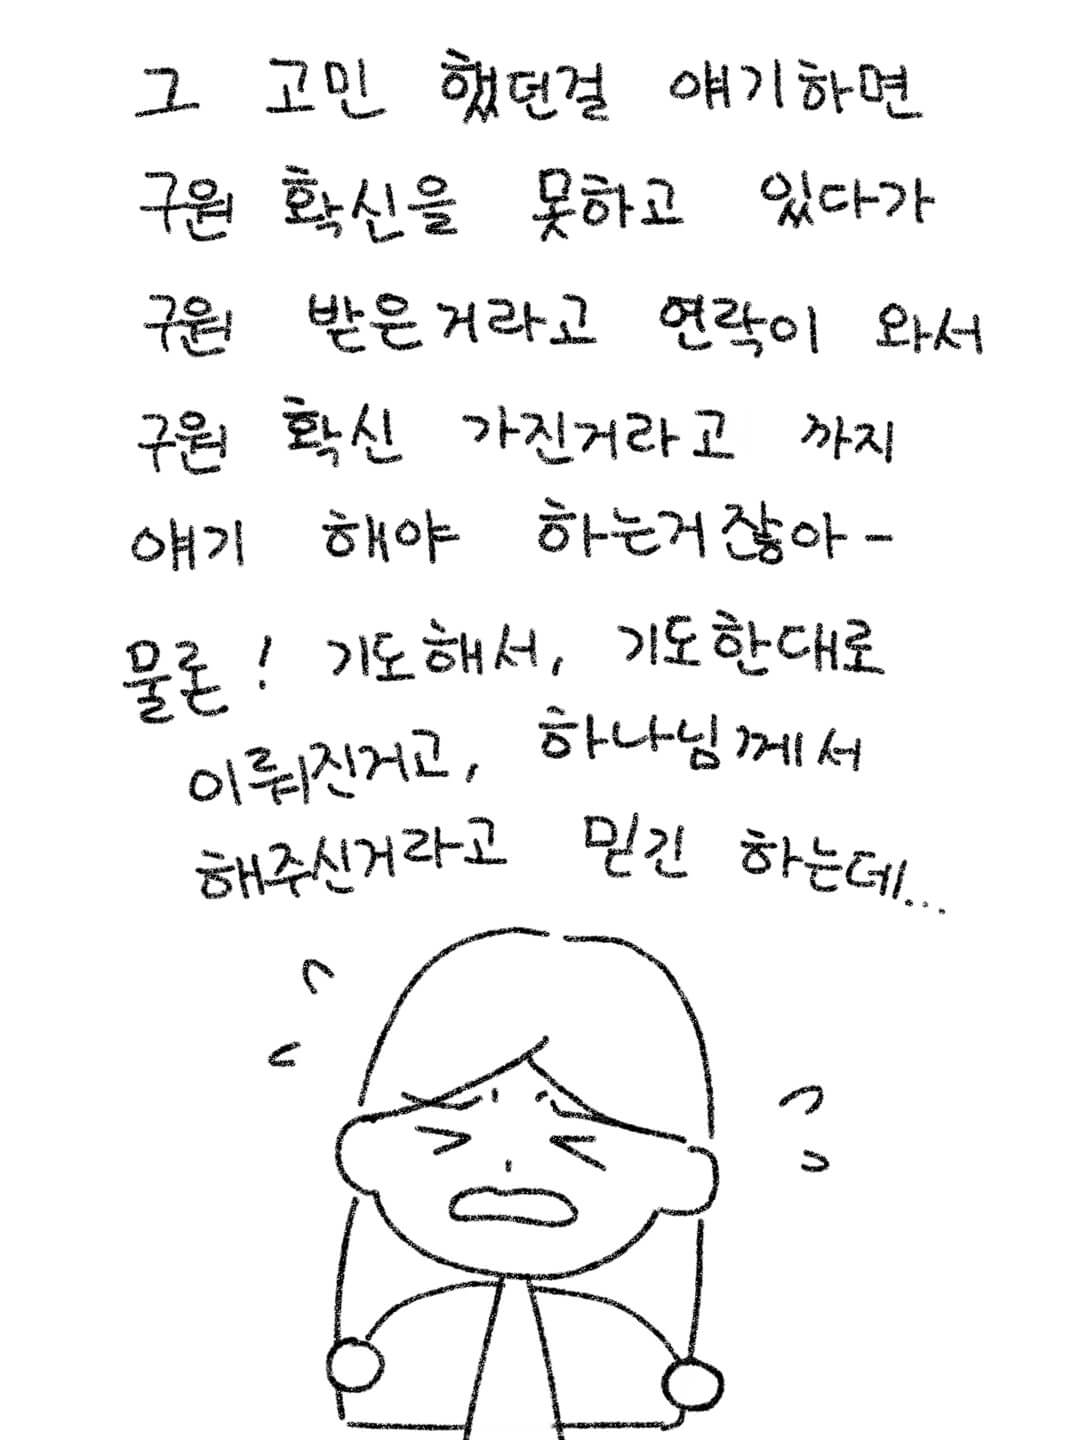 그 고민 했던걸 얘기하면
구원 확신을 못하고 있다가
구원 받은거라고 연락이 와서
구원 확신 가진거라고 까지
얘기 해야 하는거잖아-
물론! 기도해서, 기도한대로
이뤄진거고, 하나님께서
해주신거라고 믿긴 하는데...